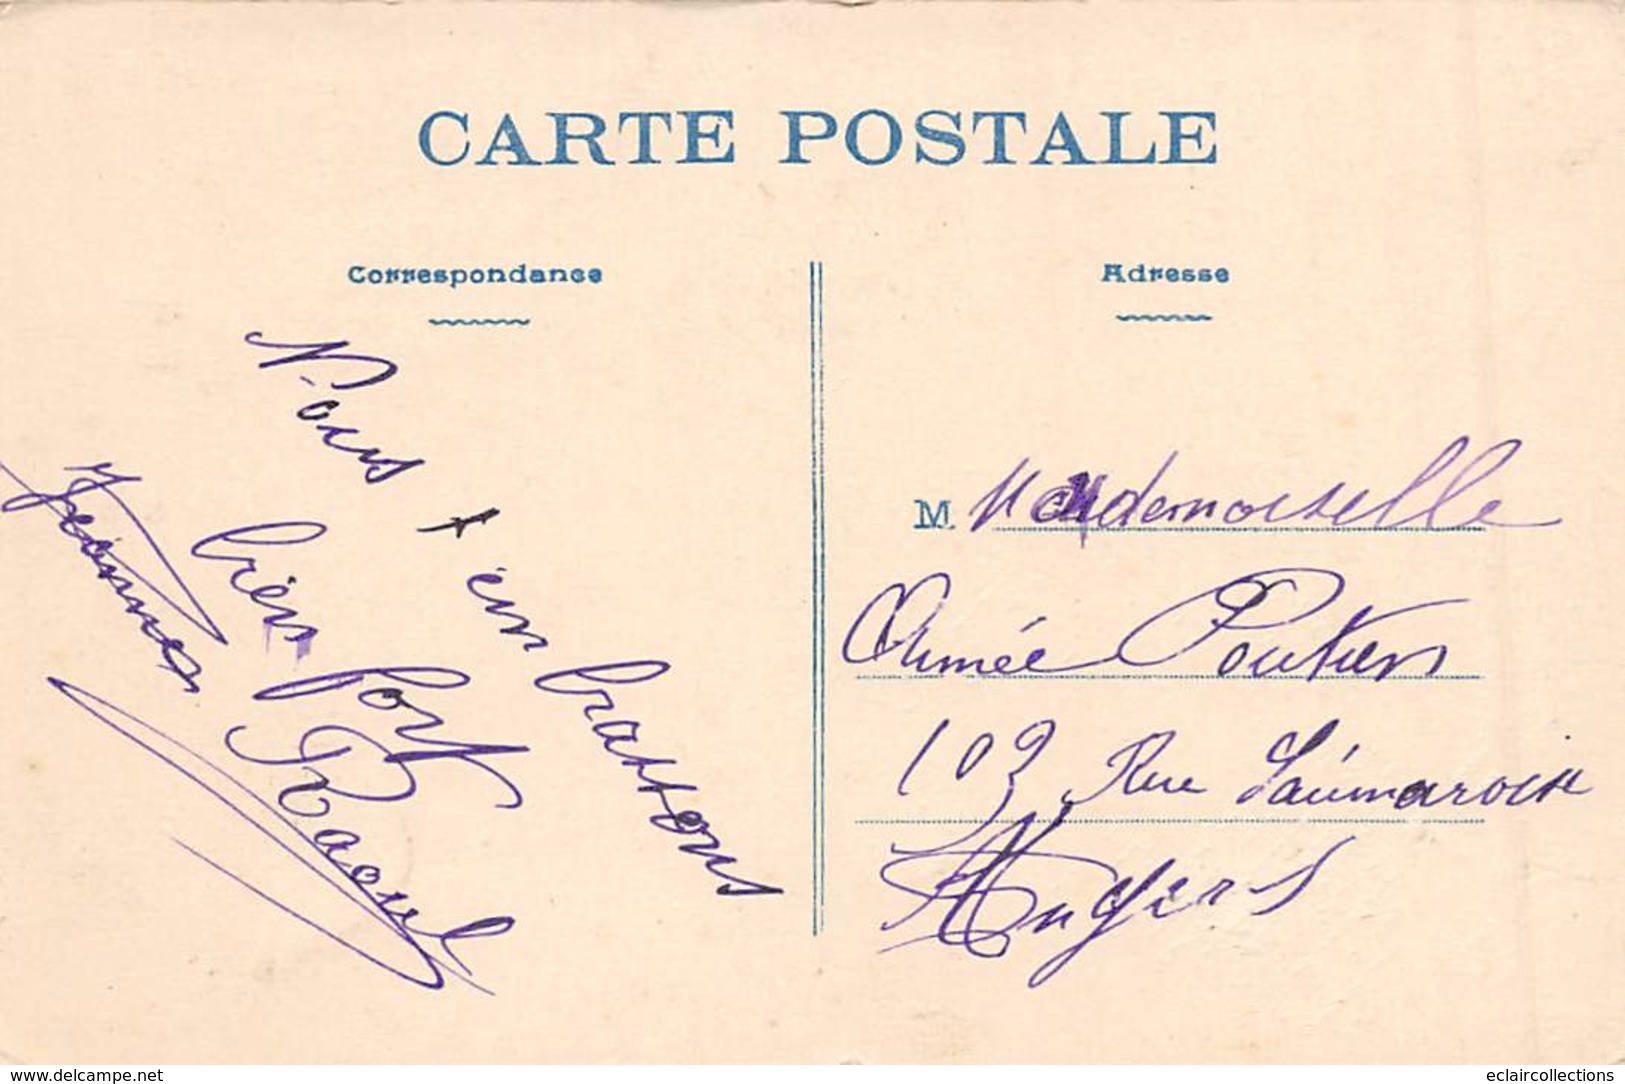 CARTE POSTALE
Correspondance
Adresse
Nous t'embrassons
bien fort
Raoul
Jeanne
M Mademoiselle
Aimée Poitiers
103 Rue Saumuroise
Angers
www.delcampe.net
eclaircollections